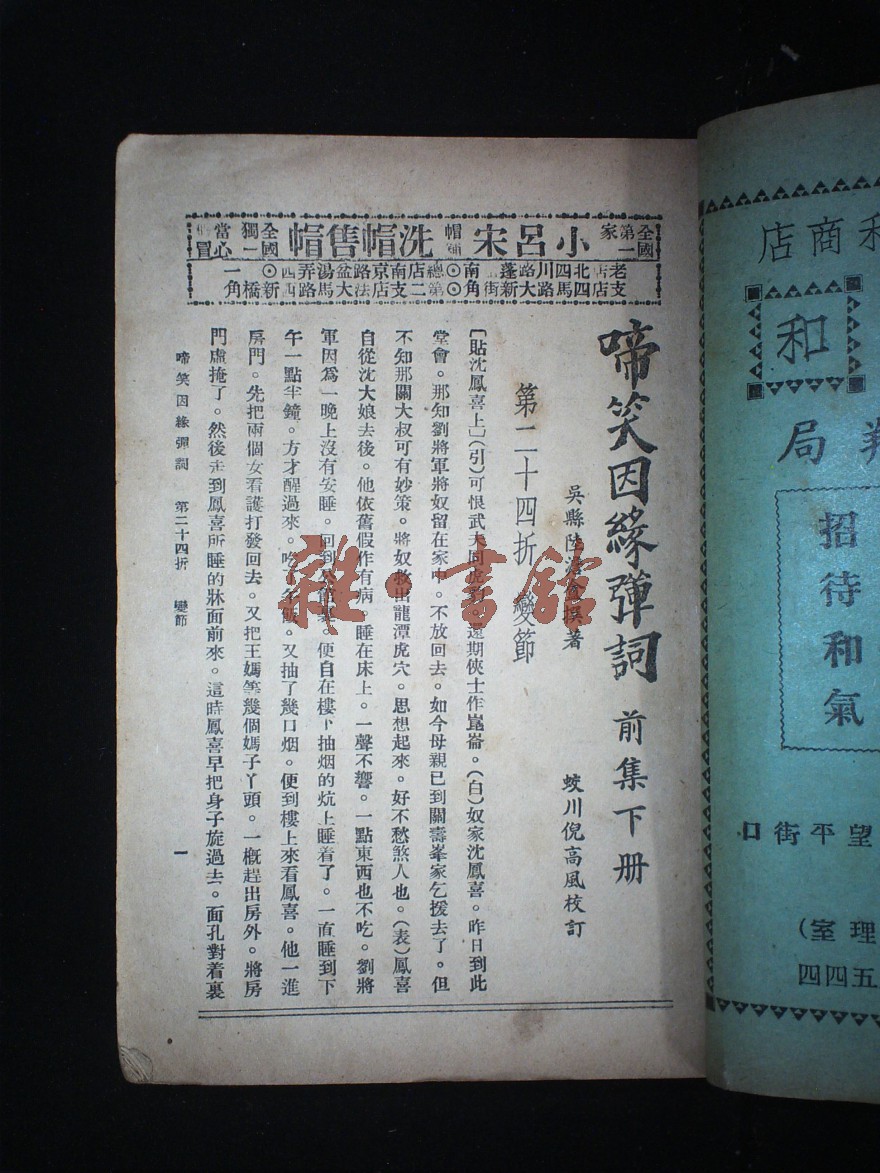 全國第一家
小呂宋
帽舖
洗帽售帽
全國獨一
當心冒
老店北四川路蓬
支店四馬路大新街
南角
總店南京路盆湯弄
第二支店法大馬路
西新橋
一角
啼笑因緣彈詞 前集下册
吳縣陸澹盦撰著
蛟川倪高風校訂
第二十四折 變節
〔貼沈鳳喜上〕(引)可恨武夫同虎豹。還期俠士作崑崙。(白)奴家沈鳳喜。昨日到此
堂會。那知劉將軍將奴留在家中。不放回去。如今母親已到關壽峯家乞援去了。但
不知那關大叔可有妙策。將奴救出龍潭虎穴。思想起來。好不愁煞人也。(表)鳳喜
自從沈大娘去後。他依舊假作有病。睡在床上。一聲不響。一點東西也不吃。劉將
軍因爲一晚上沒有安睡。回到公館裏。便自在樓下抽烟的炕上睡着了。一直睡到下
午一點半鐘。方才醒過來。吃了午飯。又抽了幾口烟。便到樓上來看鳳喜。他一進
房門。先把兩個女看護打發回去。又把王媽等幾個媽子丫頭。一概趕出房外。將房
門虛掩了。然後走到鳳喜所睡的牀面前來。這時鳳喜早把身子旋過去。面孔對着裏
啼笑因緣彈詞 第二十四折 變節
一
雜·書館
利商店
和
局
招待和氣
望平街口
理室)
五四四